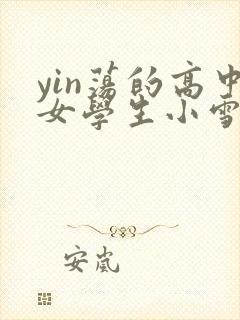 yin蕩的高中
女學生小雪
安嵐